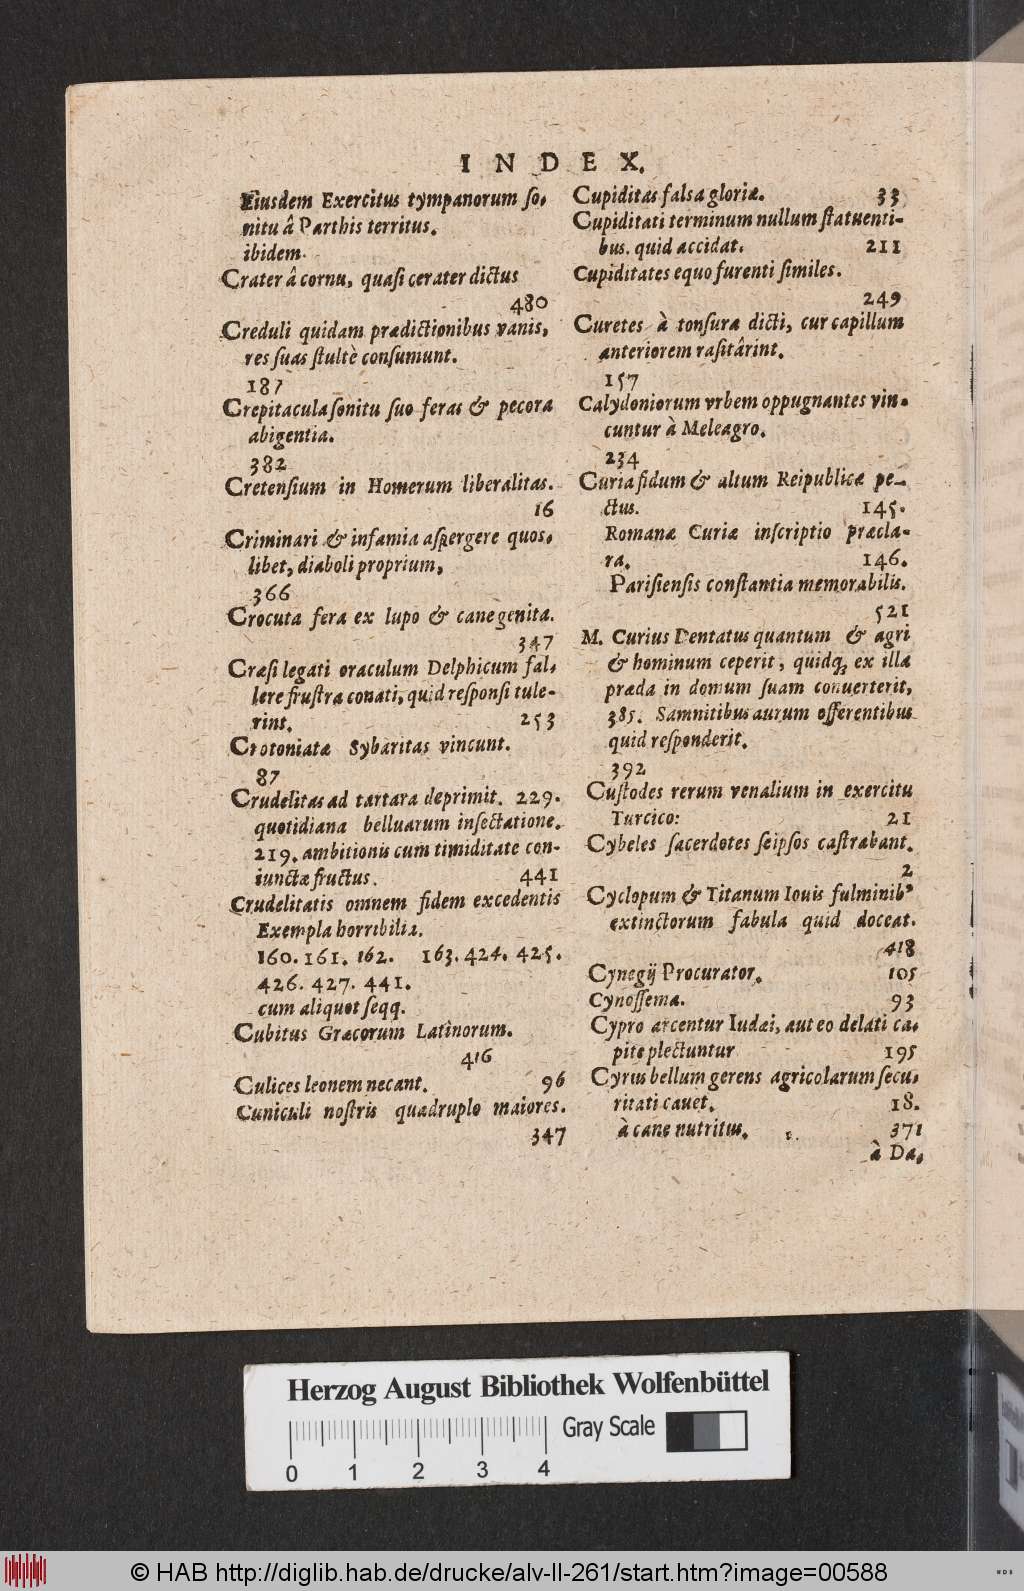 INDEX.
Eiusdem Exercitus tympanorum so-
nitu â Parthis territus.
ibidem.
Crater â cornu, quasi cerater dictus
480
Creduli quidam prædictionibus vanis,
res suas stultè consumunt.
187
Crepitacula sonitu suo feras & pecora
abigentia.
382
Cretensium in Homerum liberalitas.
16
Criminari & infamia aspergere quos-
libet, diaboli proprium,
366
Crocuta fera ex lupo & cane genita.
347
Cræsi legati oraculum Delphicum fal-
lere frustra conati, quid responsi tule-
rint. 253
Crotoniatæ Sybaritas vincunt.
87
Crudelitas ad tartara deprimit. 229.
quotidiana belluarum insectatione.
219. ambitionis cum timiditate con-
iunctæ fructus. 441
Crudelitatis omnem fidem excedentis
Exempla horribilia.
160. 161. 162. 163. 424. 425.
426. 427. 441.
cum aliquot seqq.
Cubitus Græcorum Latinorum.
416
Culices leonem necant. 96
Cuniculi nostris quadruplo maiores.
347
Cupiditas falsa gloriæ. 33
Cupiditati terminum nullum statuenti-
bus. quid accidat. 211
Cupiditates equo furenti similes.
249
Curetes à tonsura dicti, cur capillum
anteriorem rasitârint.
157
Calydoniorum vrbem oppugnantes vin-
cuntur à Meleagro.
234
Curia fidum & altum Reipublicæ pe-
ctus. 145.
Romanæ Curiæ inscriptio præcla-
ra. 146.
Parisiensis constantia memorabilis.
521
M. Curius Dentatus quantum & agri
& hominum ceperit, quidq; ex illa
præda in domum suam conuerterit,
385. Samnitibus aurum offerentibus
quid responderit.
392
Custodes rerum venalium in exercitu
Turcico: 21
Cybeles sacerdotes seipsos castrabant.
2
Cyclopum & Titanum Iouis fulminib9
extinctorum fabula quid doceat.
418
Cynegij Procurator. 105
Cynossema. 93
Cypro arcentur Iudæi, aut eo delati ca-
pite plectuntur 195
Cyrus bellum gerens agricolarum secu-
ritati cauet. 18.
à cane nutritus. 371
à Da-
Herzog August Bibliothek Wolfenbüttel
Gray Scale
0 1 2 3 4
© HAB http://diglib.hab.de/drucke/alv-ll-261/start.htm?image=00588